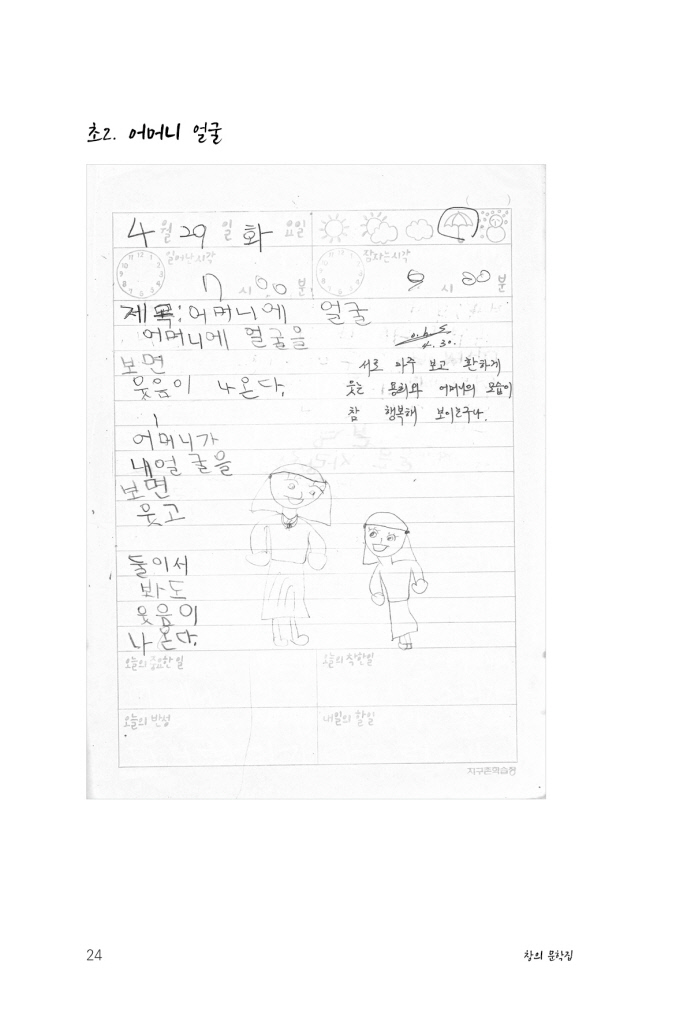 초2. 어머니 얼굴
4월 29일 화요일
일어난시각
잠자는시각
7시 00분
9시 00분
제목:어머니에 얼굴
어머니에 얼굴을
보면
웃음이 나온다.
서로 마주 보고 환하게
웃는 용희와 어머니의 모습이
참 행복해 보이는구나.
4.30.
어머니가
내얼굴을
보면
웃고
둘이서
봐도
웃음이
나온다.
오늘의 중요한일
오늘의 착한일
오늘의 반성
내일의 할일
지구촌학습장
24
창의 문학집